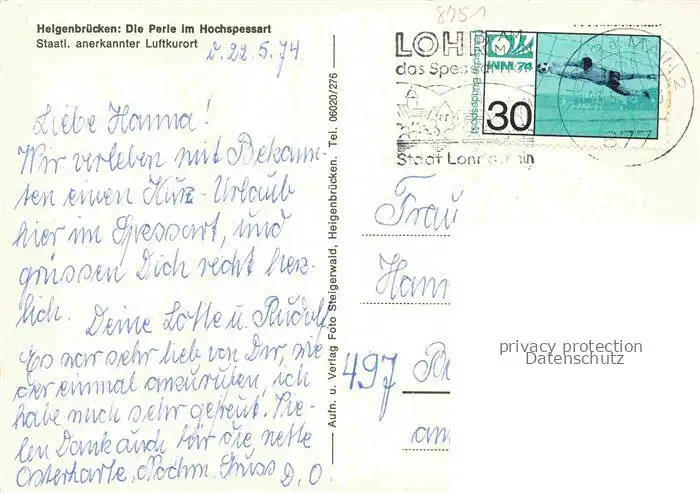 8751
Heigenbrücken: Die Perle im Hochspessart
Staatl. anerkannter Luftkurort
d. 22.5.74
Liebe Hanna!
Wir verleben mit Bekann-
ten einen Kurz-Urlaub
hier im Spessart, und
grüssen Dich recht herz-
lich.
Deine Lotte u. Rudolf
Es war sehr lieb von Dir, wie
der einmal anzurufen, ich
habe mich sehr gefreut. Vie-
len Dank auch für die nette
Osterkarte. Nochm. Gruss D. O.
Aufn. u. Verlag Foto Steigerwald, Heigenbrücken. Tel. 06020/276
LOHR AM
das Spessart
Stadt Lohr a. Main
deutsche bundespost
WM 74
30
877
2
Frau
Hann
497
am
privacy protection
Datenschutz